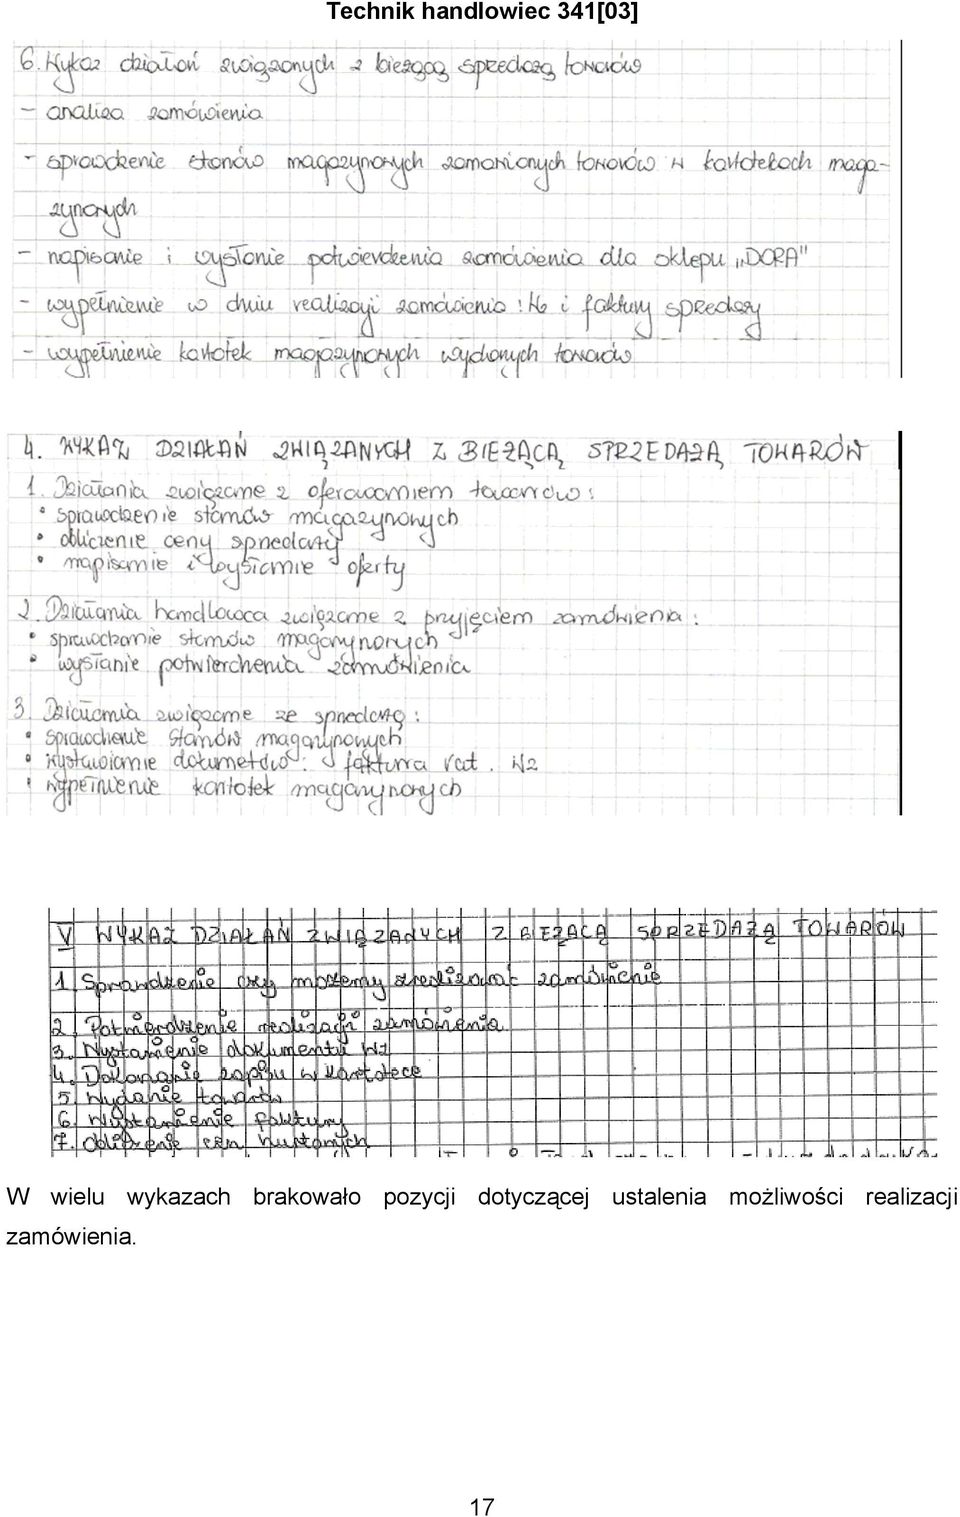 Technik handlowiec 341[03]
6. Wykaz działań związanych z bieżącą sprzedażą towarów
- analiza zamówienia
- sprawdzenie stanów magazynowych zamawianych towarów w kartotekach maga-
zynowych
- napisanie i wysłanie potwierdzenia zamówienia dla sklepu „DORA"
- wypełnienie w dniu realizacji zamówienia: Wz i faktury sprzedaży
- wypełnienie kartotek magazynowych wydanych towarów
4. WYKAZ DZIAŁAŃ ZWIĄZANYCH Z BIEŻĄCĄ SPRZEDAŻĄ TOWARÓW
1. Działania związane z oferowaniem towarów:
• sprawdzenie stanów magazynowych
• obliczenie ceny sprzedaży
• napisanie i wysłanie oferty
2. Działania handlowca związane z przyjęciem zamówienia:
• sprawdzanie stanów magazynowych
• wysłanie potwierdzenia zamówienia
3. Działania związane ze sprzedażą:
• sprawdzenie stanów magazynowych
• wystawianie dokumetów: faktura vat. Wz
• wypełnienie kartotek magazynowych
V WYKAZ DZIAŁAŃ ZWIĄZANYCH Z BIEŻĄCĄ SPRZEDAŻĄ TOWARÓW
1. Sprawdzenie czy możemy zrealizować zamówienie
2. Potwierdzenie realizacji zamówienia
3. Wystawienie dokumentu Wz
4. Dokonanie zapisu w kartotece
5. Wydanie towarów
6. Wystawienie faktury
7. Obliczenie cen
W wielu wykazach brakowało pozycji dotyczącej ustalenia możliwości realizacji
zamówienia.
17